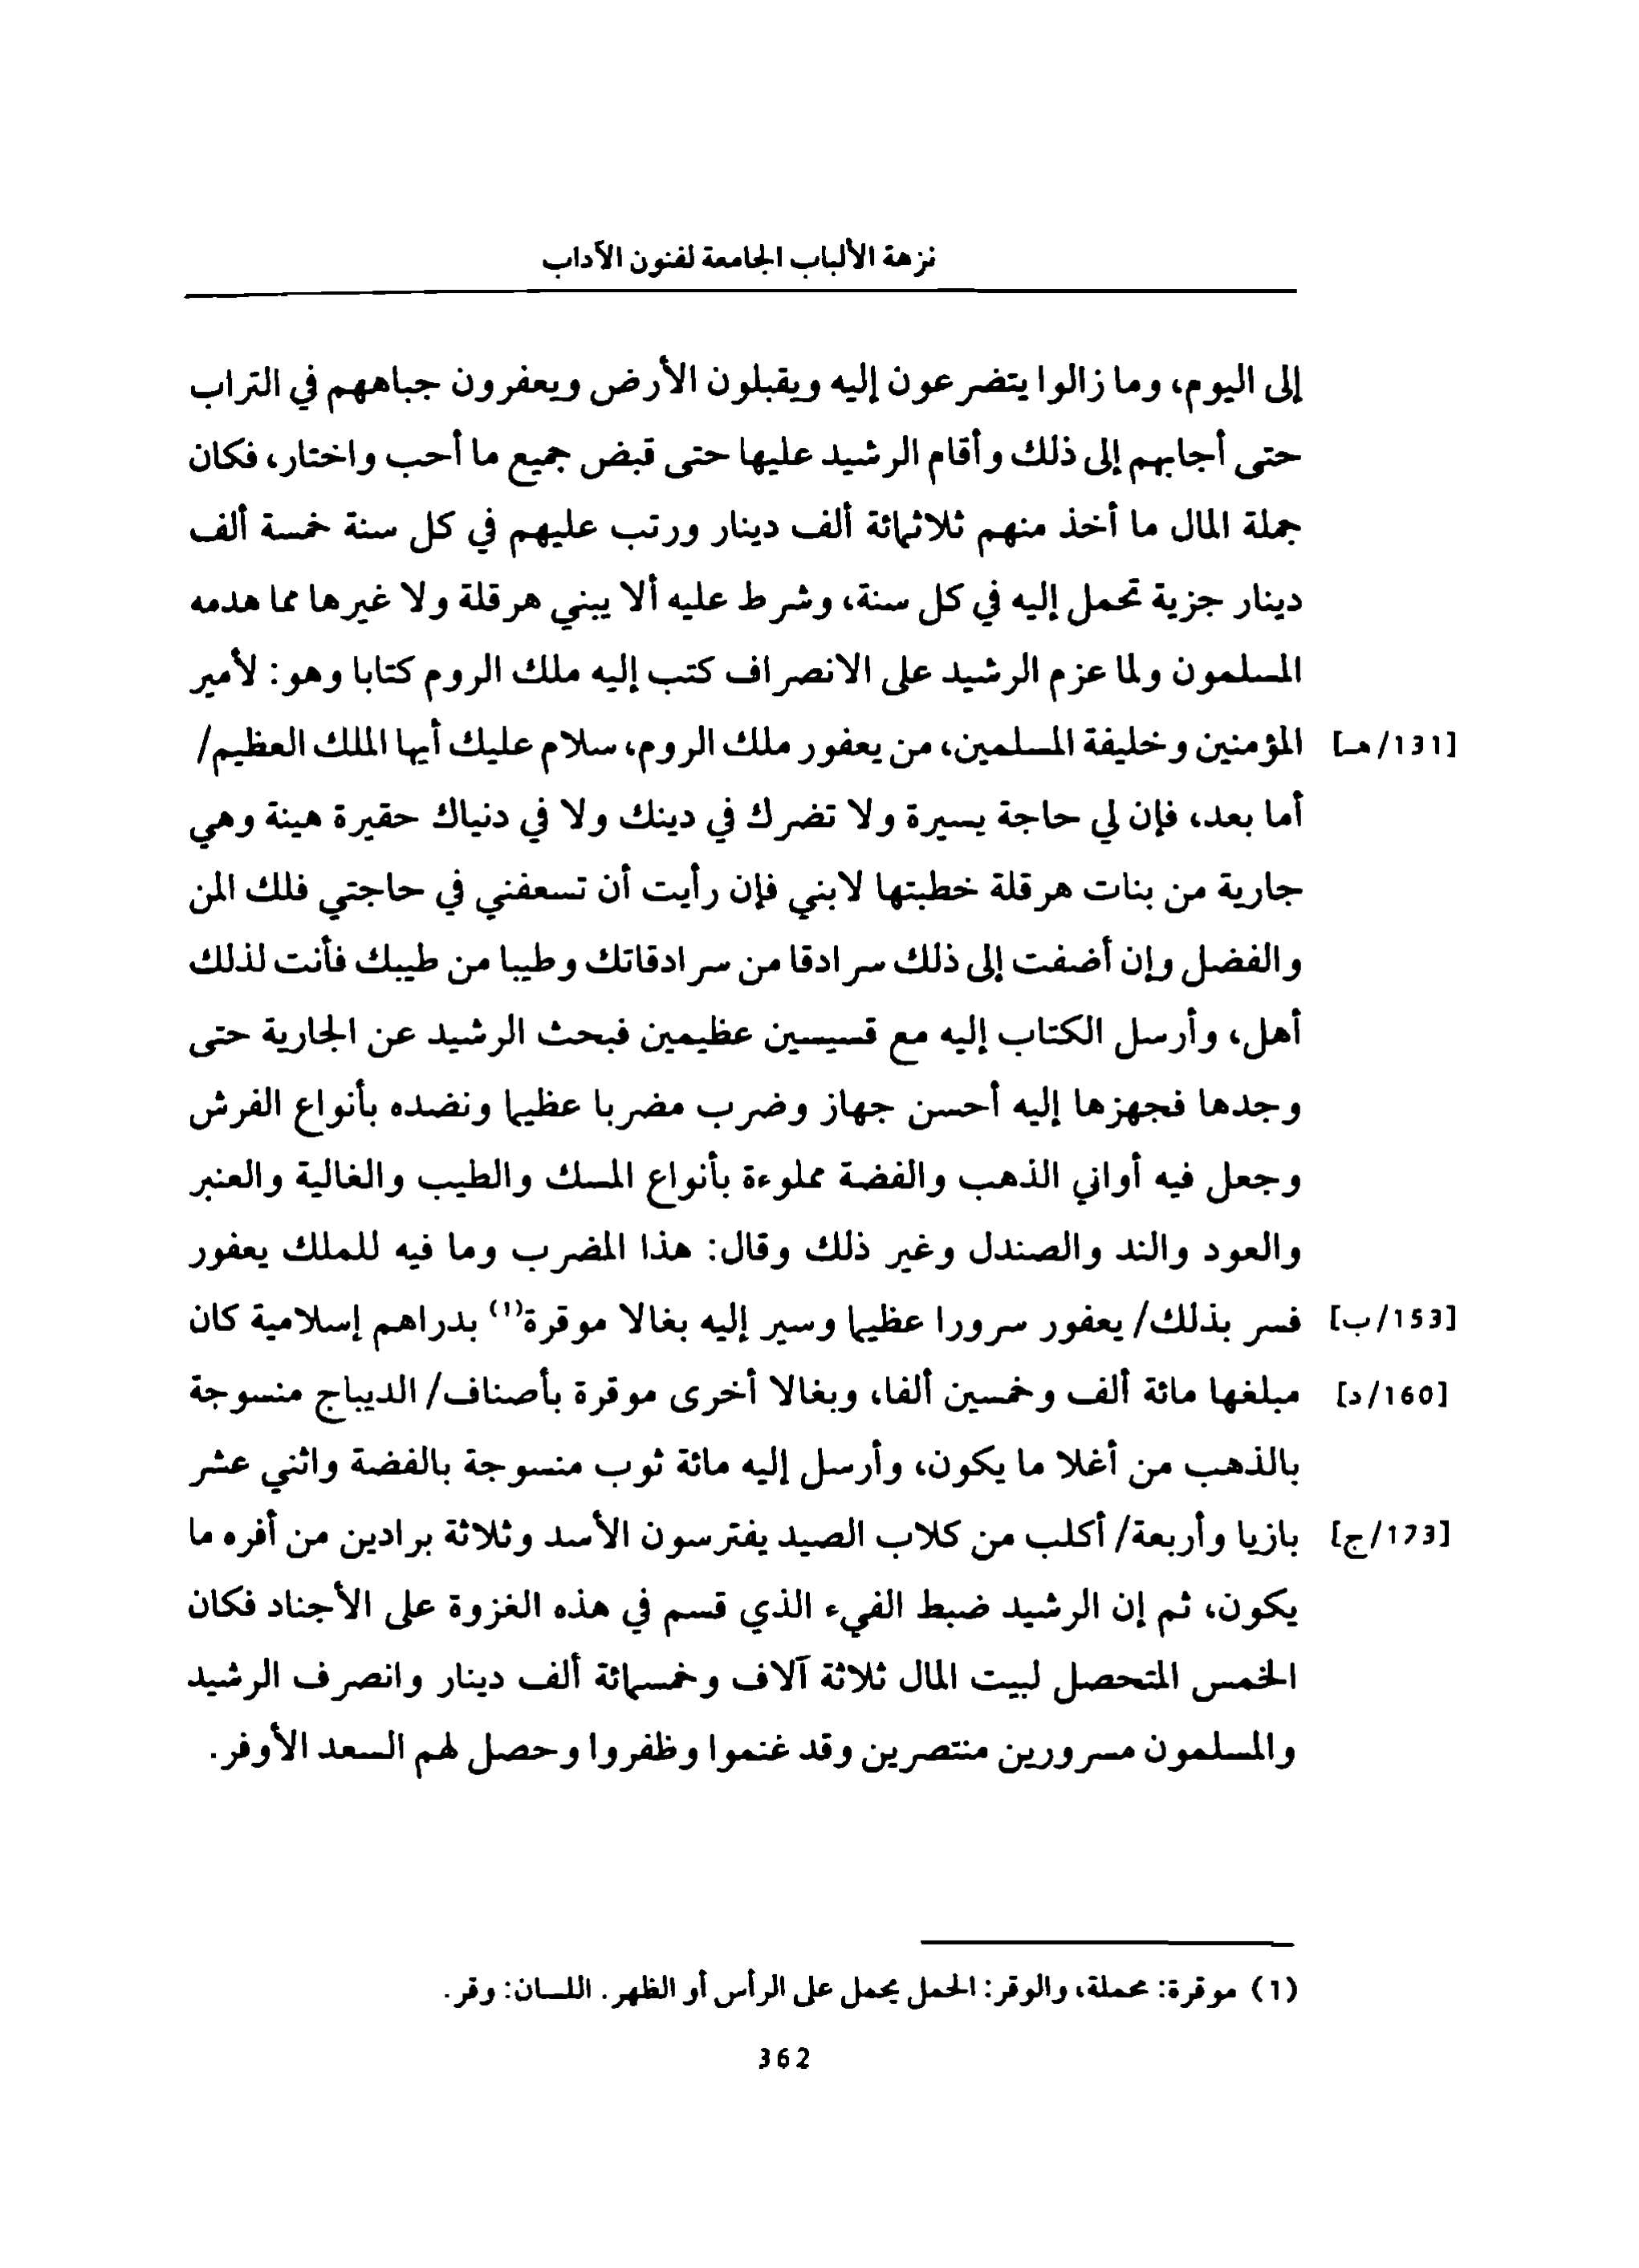 نزهة الألباب الجامعة لفنون الآداب
إلى اليوم، وما زالوا يتضرعون إليه ويقبلون الأرض ويعفرون جباههم في التراب
حتى أجابهم إلى ذلك وأقام الرشيد عليها حتى قبض جميع ما أحب واختار، فكان
جملة المال ما أخذ منهم ثلاثمائة ألف دينار ورتب عليهم في كل سنة خمسة ألف
دينار جزية تحمل إليه في كل سنة، وشرط عليه ألا يبني هرقلة ولا غيرها مما هدمه
المسلمون ولما عزم الرشيد على الانصراف كتب إليه ملك الروم كتابا وهو: لأمير
[131/هـ] المؤمنين وخليفة المسلمين، من يعفور ملك الروم، سلام عليك أيها الملك العظيم/
أما بعد، فإن لي حاجة يسيرة ولا تضرك في دينك ولا في دنياك حقيرة هينة وهي
جارية من بنات هرقلة خطبتها لابني فإن رأيت أن تسعفني في حاجتي فلك المن
والفضل وإن أضفت إلى ذلك سرادقا من سرادقاتك وطيبا من طيبك فأنت لذلك
أهل، وأرسل الكتاب إليه مع قسيسين عظيمين فبحث الرشيد عن الجارية حتى
وجدها فجهزها إليه أحسن جهاز وضرب مضربا عظيما ونضده بأنواع الفرش
وجعل فيه أواني الذهب والفضة مملوءة بأنواع المسك والطيب والغالية والعنبر
والعود والند والصندل وغير ذلك وقال: هذا المضرب وما فيه للملك يعفور
[153/ب] فسر بذلك/ يعفور سرورا عظيما وسير إليه بغالا موقرة(1) بدراهم إسلامية كان
[160/د] مبلغها مائة ألف وخمسين ألفا، وبغالا أخرى موقرة بأصناف/ الديباج منسوجة
بالذهب من أغلا ما يكون، وأرسل إليه مائة ثوب منسوجة بالفضة واثني عشر
[173/ج] بازيا وأربعة/ أكلب من كلاب الصيد يفترسون الأسد وثلاثة برادين من أفره ما
يكون، ثم إن الرشيد ضبط الفيء الذي قسم في هذه الغزوة على الأجناد فكان
الخمس المتحصل لبيت المال ثلاثة آلاف وخمسمائة ألف دينار وانصرف الرشيد
والمسلمون مسرورين منتصرين وقد غنموا وظفروا وحصل لهم السعد الأوفر.
(1) موقرة: محملة، والوقر: الحمل يحمل على الرأس أو الظهر. اللسان: وقر.
362